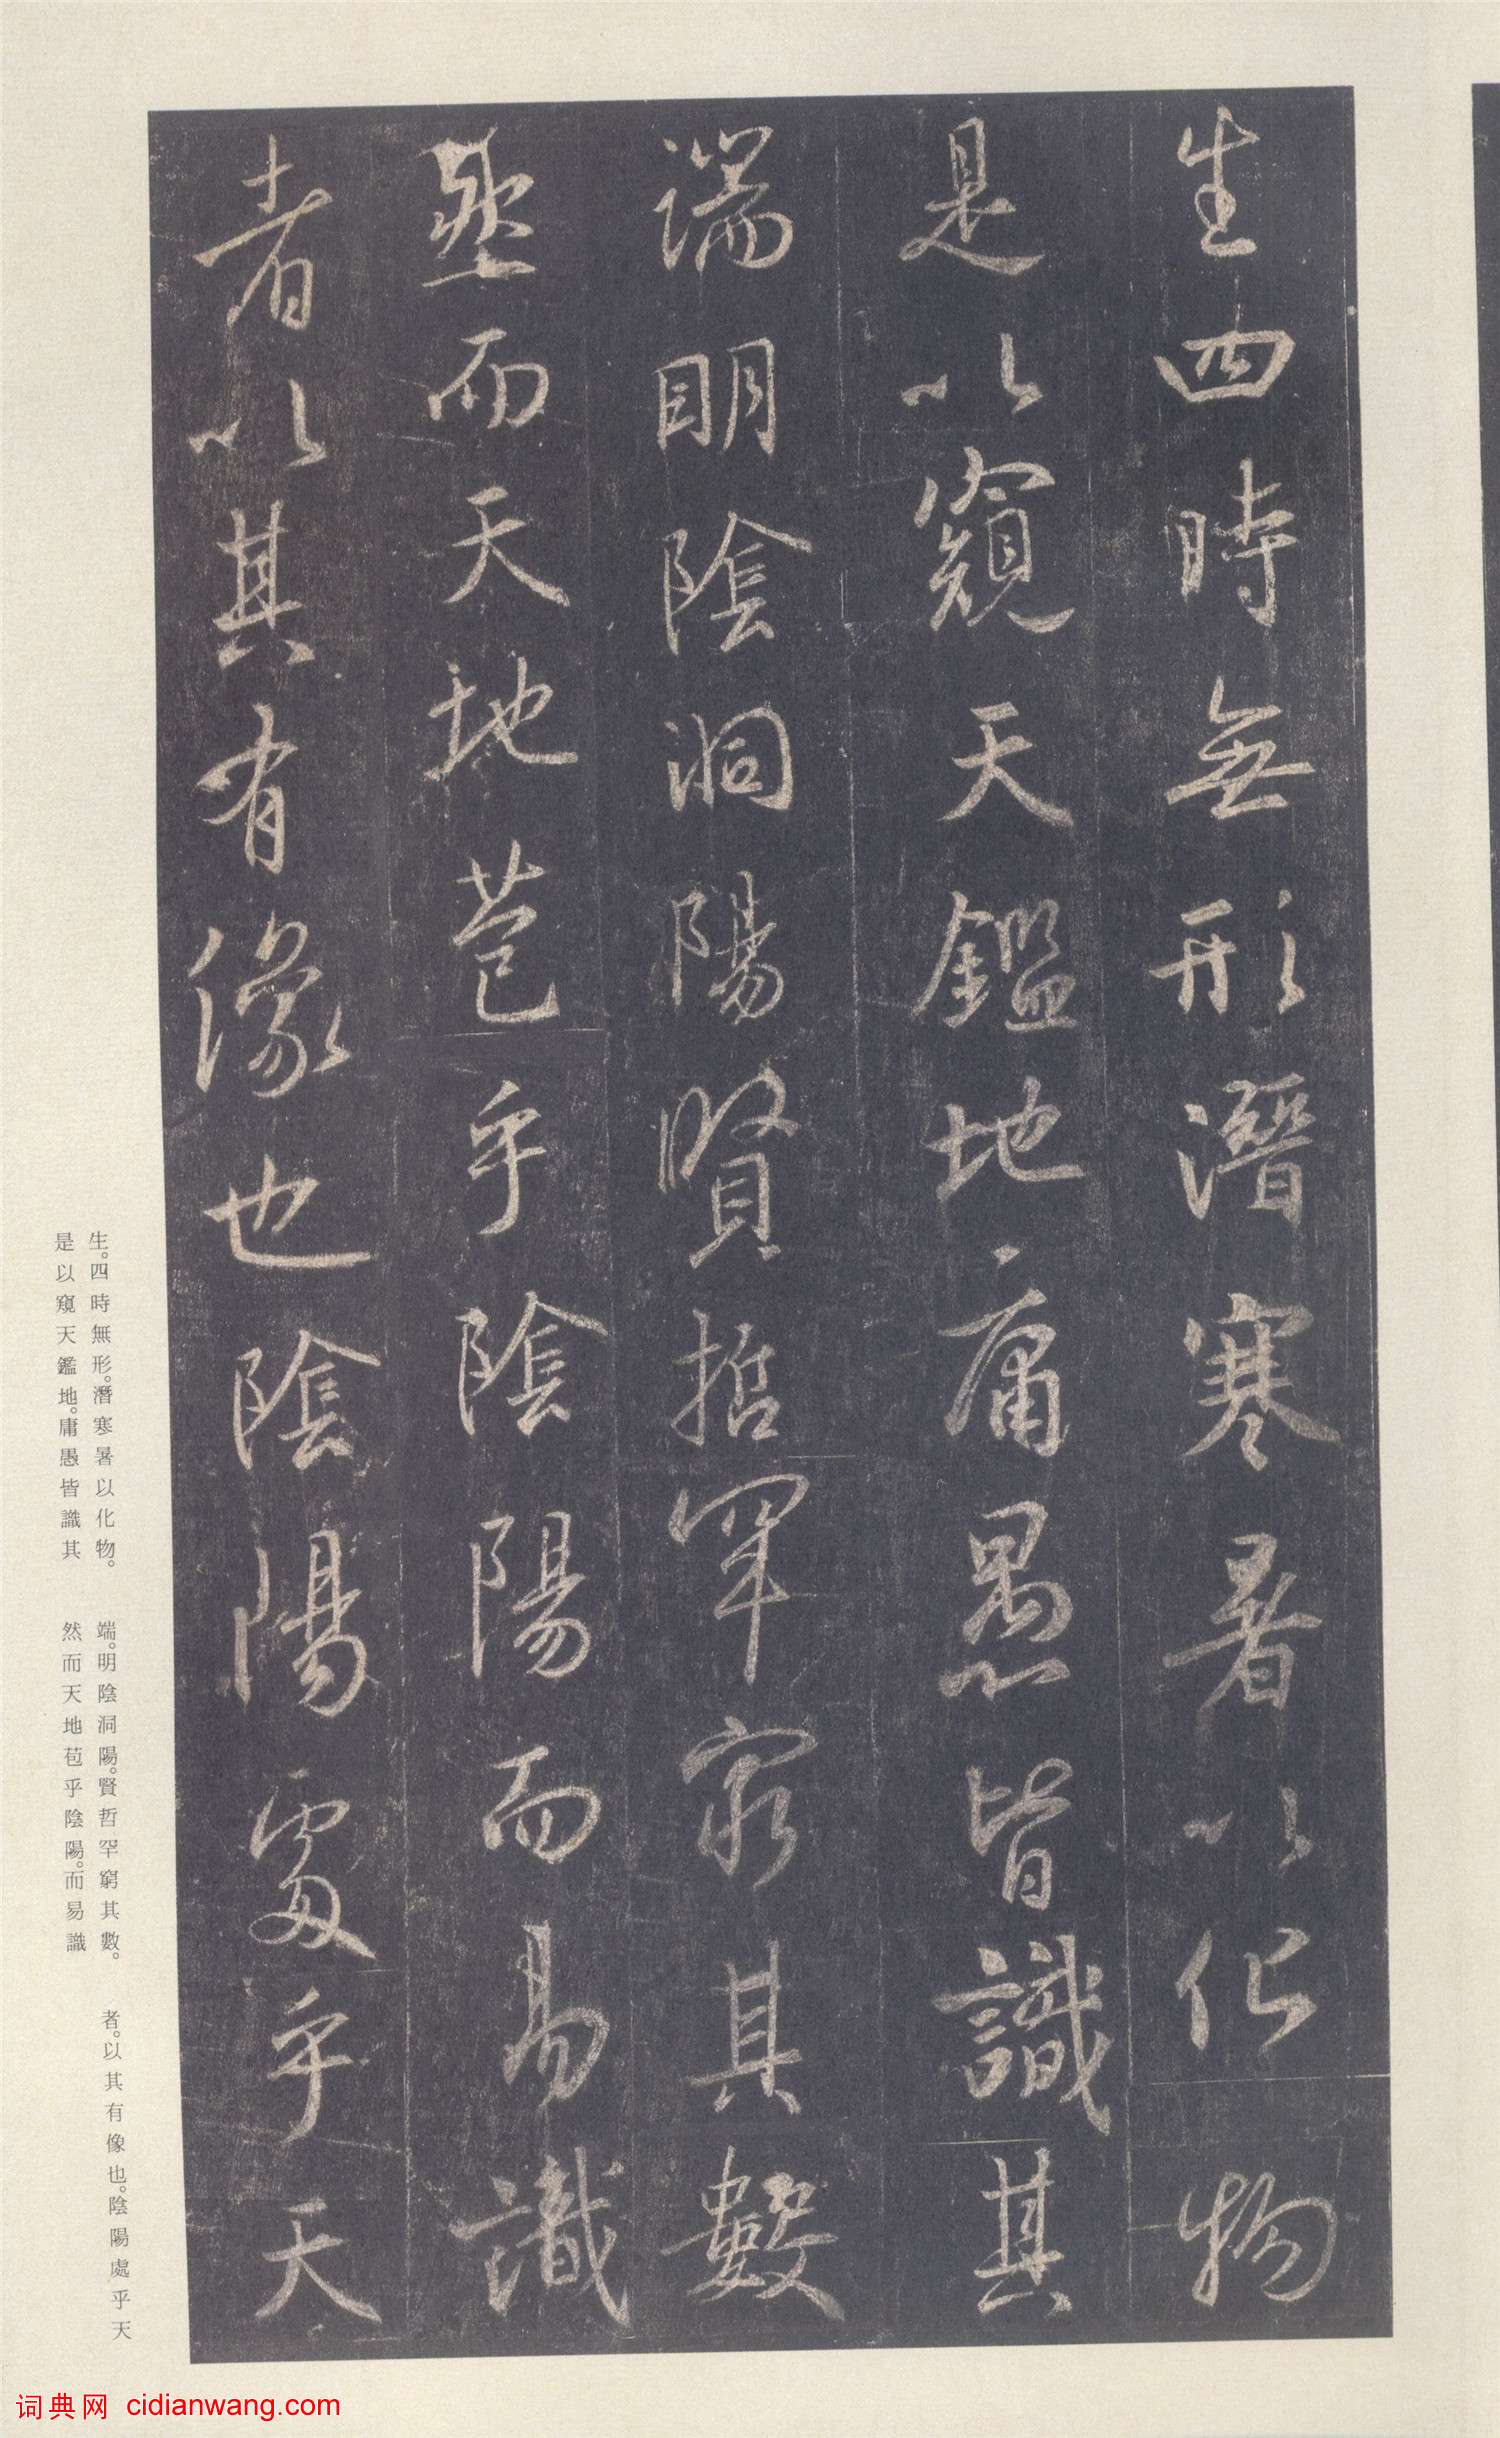 生四時無形潛寒暑以化物
是以窺天鑑地庸愚皆識其
端明陰洞陽賢哲罕窮其數
然而天地苞乎陰陽而易識
者以其有像也陰陽處乎天
生。四時無形。潛寒暑以化物。
是以窺天鑑地。庸愚皆識其
端。明陰洞陽。賢哲罕窮其數。
然而天地苞乎陰陽。而易識
者。以其有像也。陰陽處乎天
词典网 cidianwang.com